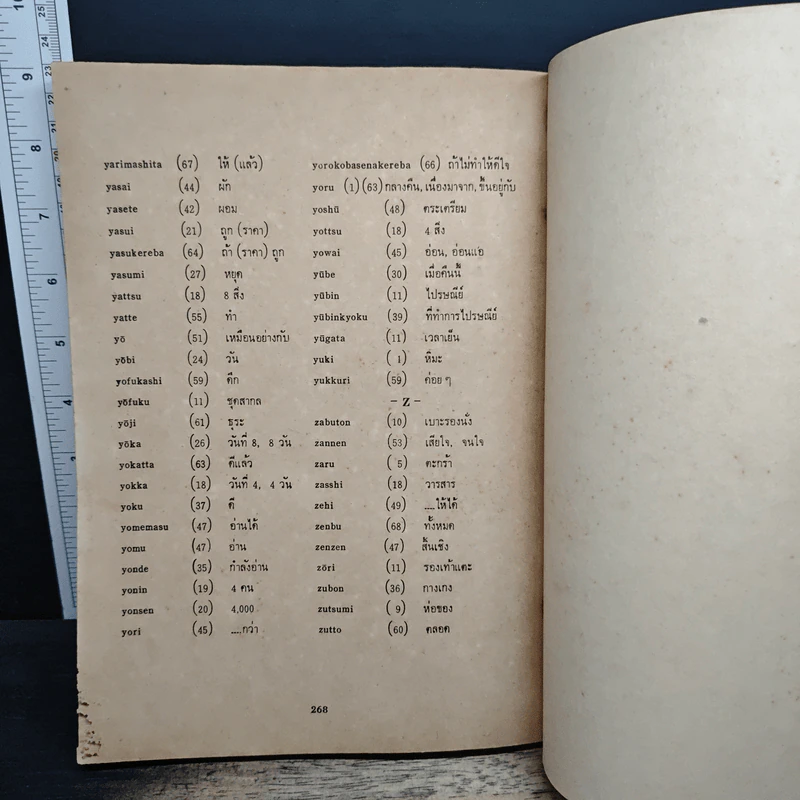 yarimashita (67) ให้ (แล้ว)
yasai (44) ผัก
yasete (42) ผอม
yasui (21) ถูก (ราคา)
yasukereba (64) ถ้า (ราคา) ถูก
yasumi (27) หยุด
yattsu (18) 8 สิ่ง
yatte (55) ทำ
yō (51) เหมือนอย่างกับ
yōbi (24) วัน
yofukashi (59) ดึก
yōfuku (11) ชุดสากล
yōji (61) ธุระ
yōka (26) วันที่ 8, 8 วัน
yokatta (63) ดีแล้ว
yokka (18) วันที่ 4, 4 วัน
yoku (37) ดี
yomemasu (47) อ่านได้
yomu (47) อ่าน
yonde (35) กำลังอ่าน
yonin (19) 4 คน
yonsen (20) 4,000
yori (45) ....กว่า
yorokobasenakereba (66) ถ้าไม่ทำให้ดีใจ
yoru (1)(63) กลางคืน, เนื่องมาจาก, ขึ้นอยู่กับ
yoshū (48) ตระเตรียม
yottsu (18) 4 สิ่ง
yowai (45) อ่อน, อ่อนแอ
yūbe (30) เมื่อคืนนี้
yūbin (11) ไปรษณีย์
yūbinkyoku (39) ที่ทำการไปรษณีย์
yūgata (11) เวลาเย็น
yuki (1) หิมะ
yukkuri (59) ค่อย ๆ
– Z –
zabuton (10) เบาะรองนั่ง
zannen (53) เสียใจ, จนใจ
zaru (5) ตะกร้า
zasshi (18) วารสาร
zehi (49) ....ให้ได้
zenbu (68) ทั้งหมด
zenzen (47) สิ้นเชิง
zōri (11) รองเท้าแตะ
zubon (36) กางเกง
zutsumi (9) ห่อของ
zutto (60) ตลอด
268
10
9
8
7
6
5
4
3
2
1
25
24
23
22
21
20